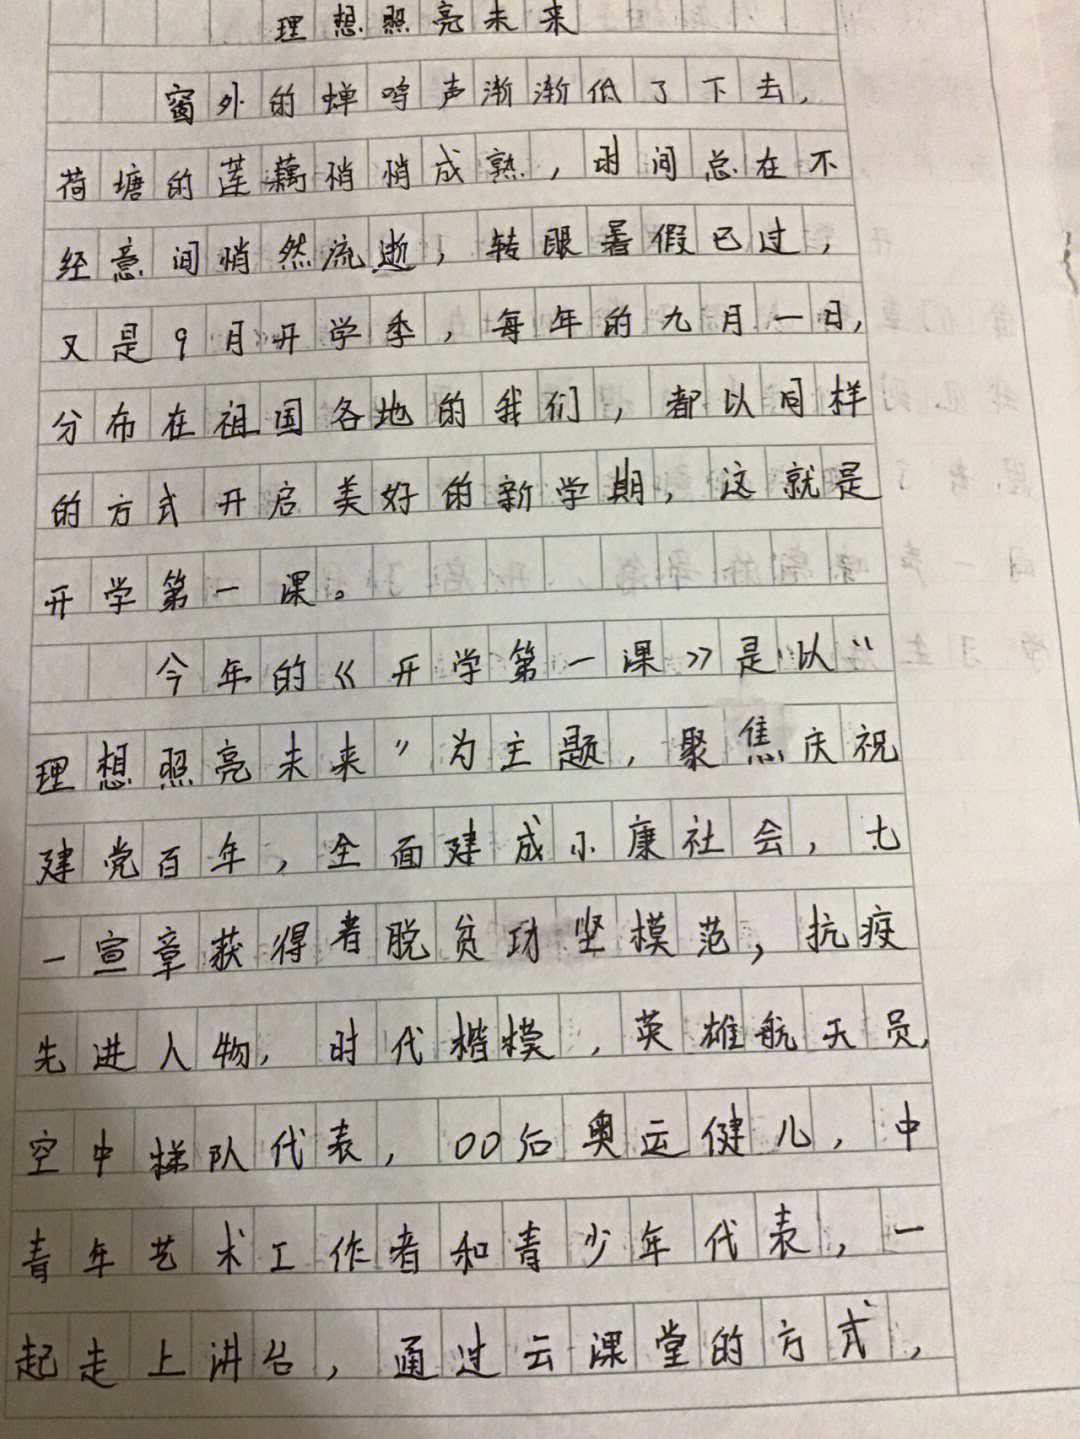 理想照亮未来
窗外的蝉鸣声渐渐低了下去,
荷塘的莲藕悄悄成熟,时间总在不
经意间悄然流逝,转眼暑假已过,
又是9月开学季,每年的九月一日,
分布在祖国各地的我们,都以同样
的方式开启美好的新学期,这就是
开学第一课。
今年的《开学第一课》是以“
理想照亮未来”为主题,聚焦庆祝
建党百年,全面建成小康社会,七
一宣章获得者脱贫功坚模范,抗疫
先进人物,时代楷模,英雄航天员,
空中梯队代表,00后奥运健儿,中
青年艺术工作者和青少年代表,一
起走上讲台,通过云课堂的方式,